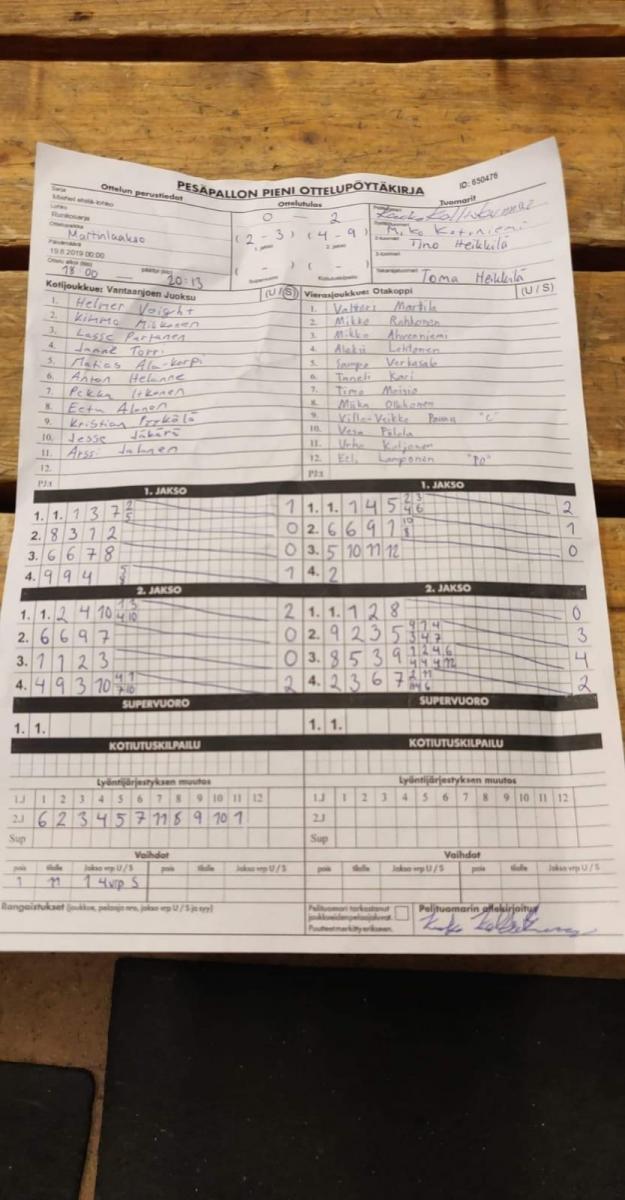 PESÄPALLON PIENI OTTELUPÖYTÄKIRJA ID: 650476
Sarja Ottelun perustiedot Ottelutulos Tuomarit
Miehet etelä-lohko
Lohko 0 — 2
Runkosarja Mika Kotiniemi
Ottelupaikka (2 - 3) (4 - 9) Timo Heikkilä
Martinlaakso 1. jakso 2. jakso
Päivämäärä
19.6.2019 00:00 ( - ) ( - )
Ottelu alkoi (klo) päättyi (klo) Supervuoro Kotiutuskilpailu
18 00 20:13 Toma Heikkilä
Kotijoukkue: Vantaanjoen Juoksu (U / S) Vierasjoukkue: Otakoppi (U / S)
1. Helmer Voight 1. Valtteri Martila
2. Kimmo Mikkonen 2. Mikko Rahkonen
3. Lasse Partanen 3. Mikko Ahvenniemi
4. Janne Torri 4. Aleksi Lehtonen
5. Matias Ala-Korpi 5. Sampo Verkasalo
6. Anton Helanne 6. Taneli Kari
7. Pekka Itkonen 7. Timo Moisio
8. Eetu Alonen 8. Miika Ollikainen
9. Kristian Pyykölä 9. Ville-Veikko "C"
10. Jesse 10. Vesa Pölölä
11. Arssi 11. Urho Koljonen
12. 12. Lamponen "PO"
PJ:t PJ:t
1. JAKSO 1. JAKSO
1. 1. 1 3 7 2 5 1 1. 1. 1 4 5 2 3 4 6 2
2. 8 3 1 2 0 2. 6 6 9 1 10 8 1
3. 6 6 7 8 0 3. 5 10 11 12 0
4. 9 9 4 1 4. 2
2. JAKSO 2. JAKSO
1. 1. 2 4 10 1 3 4 10 2 1. 1. 1 2 8 0
2. 6 6 9 7 0 2. 9 2 3 5 9 1 4 3 4 7 3
3. 1 1 2 3 0 3. 8 5 3 9 1 2 4 6 4 4 4 12 4
4. 4 9 3 10 4 1 7 10 2 4. 2 3 6 7 2 11 2
SUPERVUORO SUPERVUORO
1. 1. 1. 1.
KOTIUTUSKILPAILU KOTIUTUSKILPAILU
Lyöntijärjestyksen muutos Lyöntijärjestyksen muutos
1.J 1 2 3 4 5 6 7 8 9 10 11 12 1.J 1 2 3 4 5 6 7 8 9 10 11 12
2.J 6 2 3 4 5 7 11 8 9 10 1 2.J
Sup Sup
Vaihdot Vaihdot
pois tilalle Jakso vrp U / S pois tilalle Jakso vrp U / S pois tilalle Jakso vrp U / S pois tilalle Jakso vrp U / S
1 11 1 4vrp S
Rangaistukset (joukkue, pelaaja nro, jakso vrp U / S ja syy) Pelituomari tarkastanut Pelituomarin allekirjoitus
joukkueiden pelaajaluvat.
Puutteet merkitty erikseen.